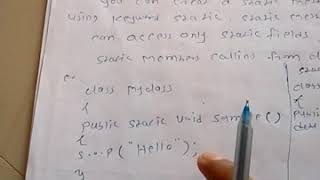 you can creat a static
using keyword static, static
can access only static fields
static members calling from
ex class myclass
{
public static void sample()
{
s.o.p("Hello");
}
class
{
public